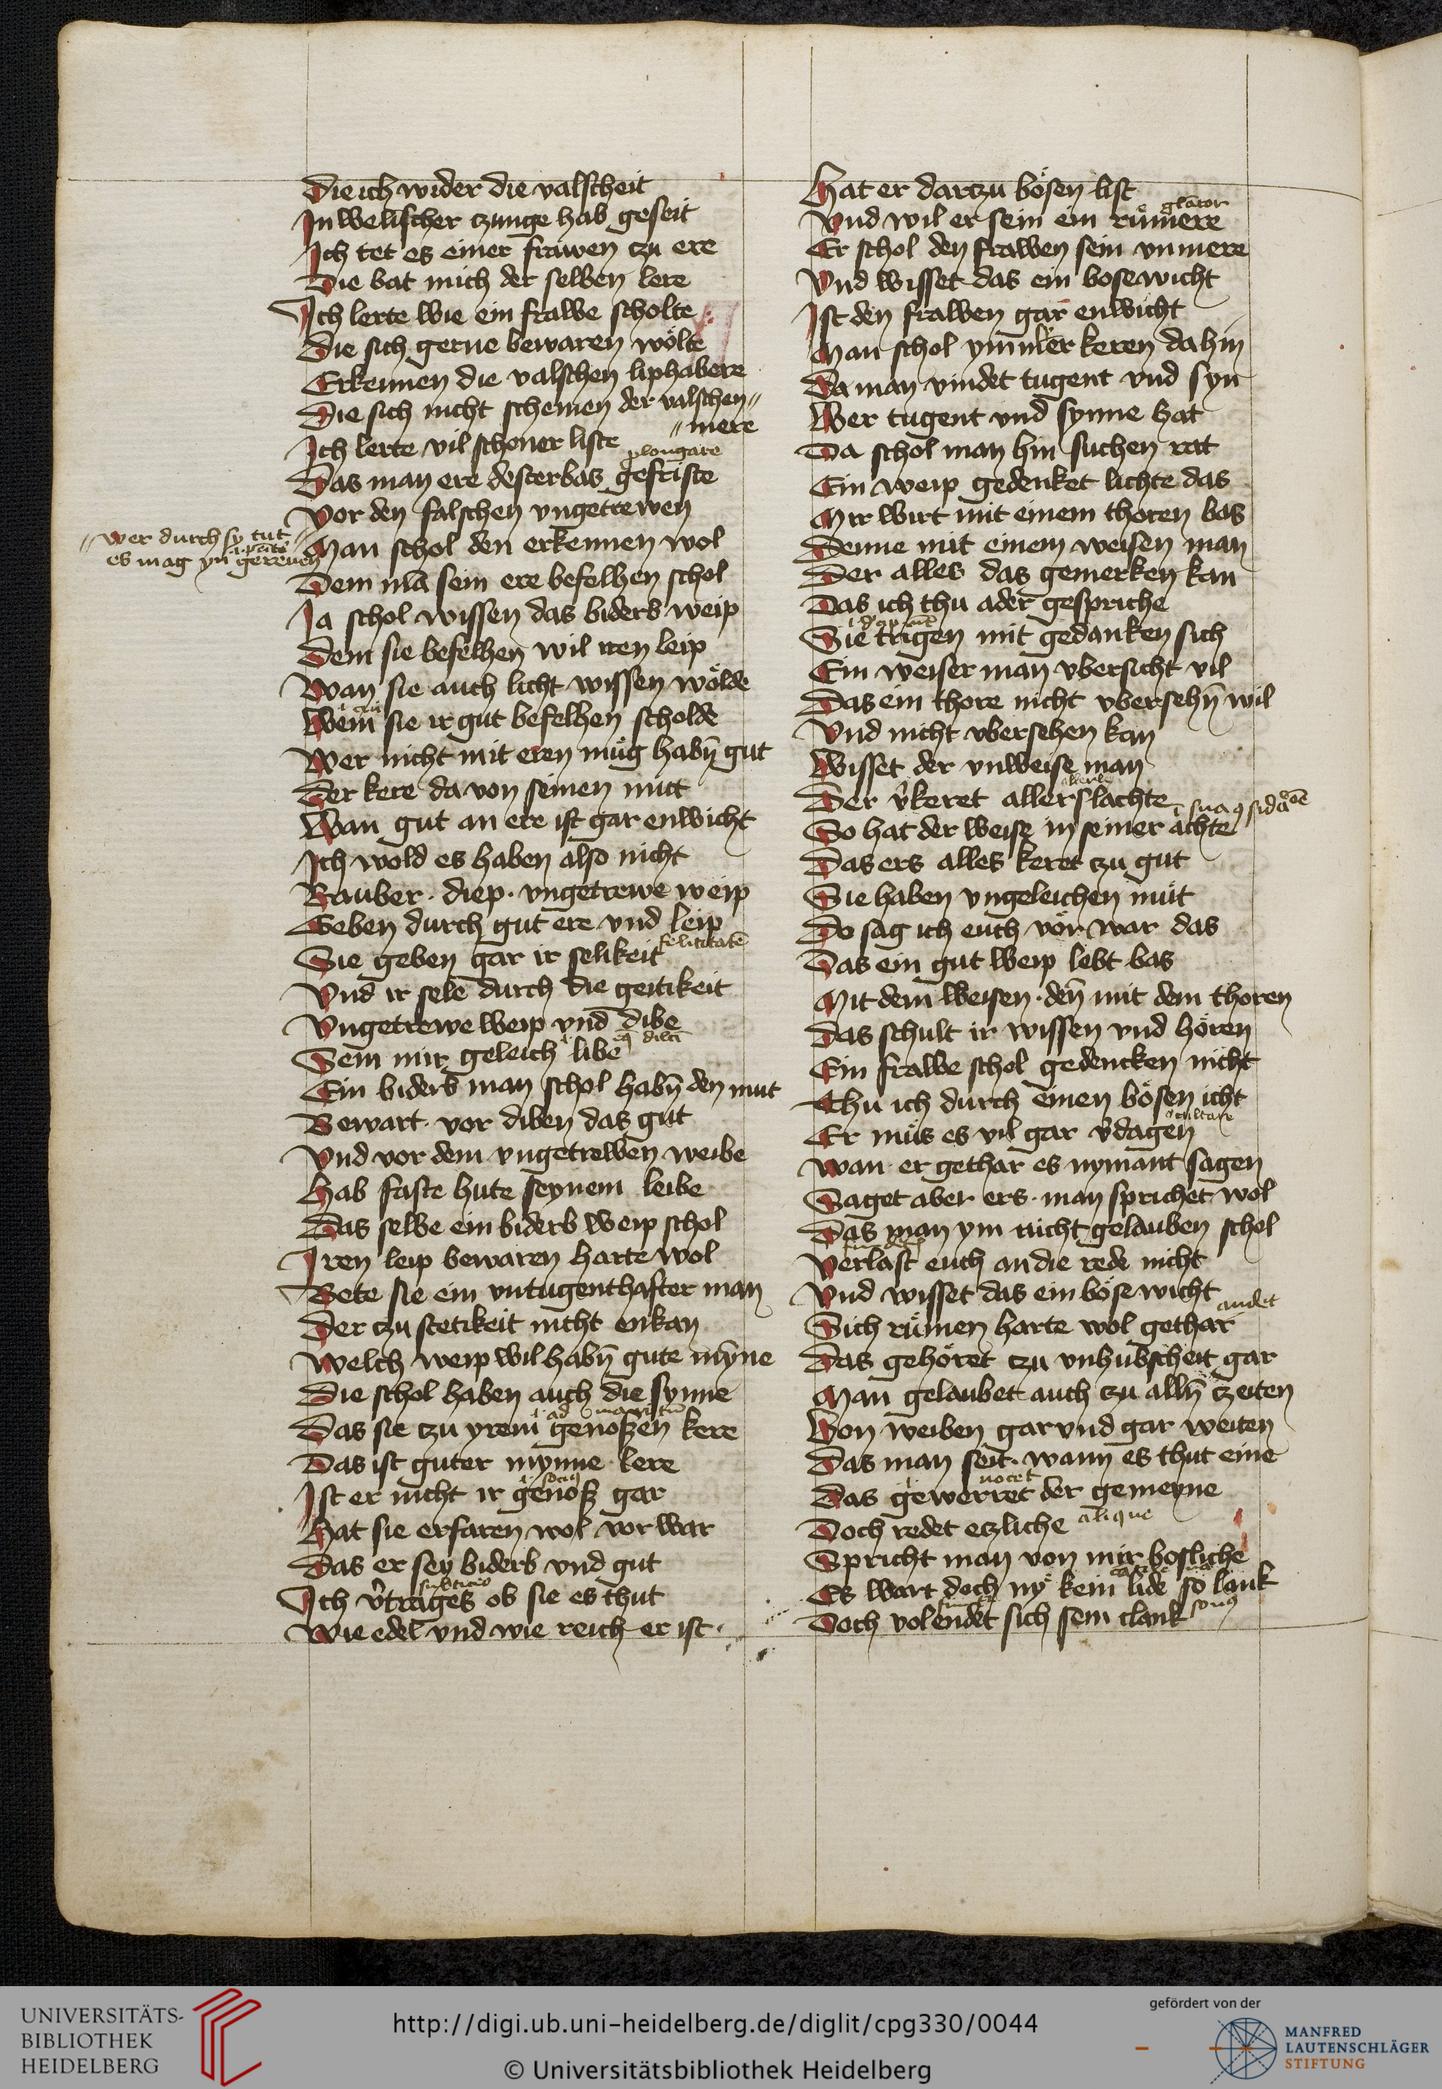 Die ich wider die valscheit
In welischer czunge hab geseit
Ich tet es einer frawen czu ere
Die bat mich der selben lere
Ich lerte wie ein frawe scholte
Die sich gerne bewaren wölte
Erkennen die valschen liphabere
Die sich nicht schemen der valschen //
// mere
Ich lerte vil schoner liste
plongare
Das man ere desterbas gefriste
Vor den falschen vngetrewen
// wer durch sy tut
es mag yn gerewen
Man schol den erkennen wol
Dem mā sein ere befelhen schol
Ja schol wissen das biderb weip
Dem sie befelhen wil iren leip
Wan sie auch licht wissen wölde
Wem sie ir gut befelhen scholde
Wer nicht mit eren müg habn̄ gut
Der kere da von seinen mut
Wan gut an ere ist gar enwicht
Ich wold es haben also nicht
Rauber · diep · vngetrewe weip
Geben durch gut ere vnd leip
felicitatē
Sie geben gar ir selikeit
Vnd ir sele durch die geitikeit
Vngetrewe weip vnd dibe
Sein mir geleich libe
Ein biderb man schol habn̄ den mut
Bewart · vor diben das gut
Vnd vor dem vngetrewen weibe
Hab faste hute seynem leibe
Das selbe ein biderb weip schol
Iren leip bewaren harte wol
Bete sie ein vntugenthafter man
Der czu stetikeit nicht enkan
Welch weip wil habn̄ gute mȳne
Die schol haben auch die synne
i ad maritū
Das sie czu yrem genoßen kere
Das ist guter mynne lere
Ist er nicht ir genoß gar
Hat sie erfaren wol vor war
Das er sey biderb vnd gut
Ich v̄trages ob sie es thut
Wie edel vnd wie reich er ist ·
Hat er darczu bösen list
Vnd wil er sein ein rümere
Er schol den frawen sein vnmere
Vnd wisset das ein bosewicht
Ist den frawen gar enwicht
Man schol ymmer keren dahin
Da man vindet tugent vnd syn
Wer tugent vnd synne hat
Da schol man hin suchen rat
Ein weip gedenket lichte das
Mir wirt mit einem thoren bas
Denne mit einem weisen man
Der alles das gemerken kan
Das ich thu ader gespriche
Sie trigen mit gedanken sich
Ein weiser man vbersicht vil
Das ein thore nicht vbersehn̄ wil
Vnd nicht vbersehen kan
Wisset der vnweise man
Der v̄keret allerslachte
So hat der weise in seiner achte
Das ers alles keret czu gut
Sie haben vngeleichen müt
Do sag ich euch vor war das
Das ein gut weip lebt bas
Mit dem weisen · den̄ mit dem thoren
Das schult ir wissen vnd hören
Ein frawe schol gedencken nicht
Thu ich durch einen bösen icht
occultare
Er müs es vil gar v̄dagen
Wan er gethar es nymant sagen
Saget aber ers · man sprichet wol
Das man ym nicht gelauben schol
Verlast euch an die rede nicht
Vnd wisset das ein böse wicht
audet
Sich rümen harte wol gethar
Das gehöret czu vnhubscheit gar
Man gelaubet auch czu alln̄ czeiten
Von weiben gar vnd gar weiten
Das man seit · wann es thut eine
nocet
Das gewerret der gemeyne
Doch redet etzliche
aliique
Spricht man von mir bosliche
Es wart doch ny kein lide so lank
Doch volendet sich sein clank
sonus
UNIVERSITÄTS-
BIBLIOTHEK
HEIDELBERG
http://digi.ub.uni-heidelberg.de/diglit/cpg330/0044
© Universitätsbibliothek Heidelberg
gefördert von der
MANFRED
LAUTENSCHLÄGER
STIFTUNG